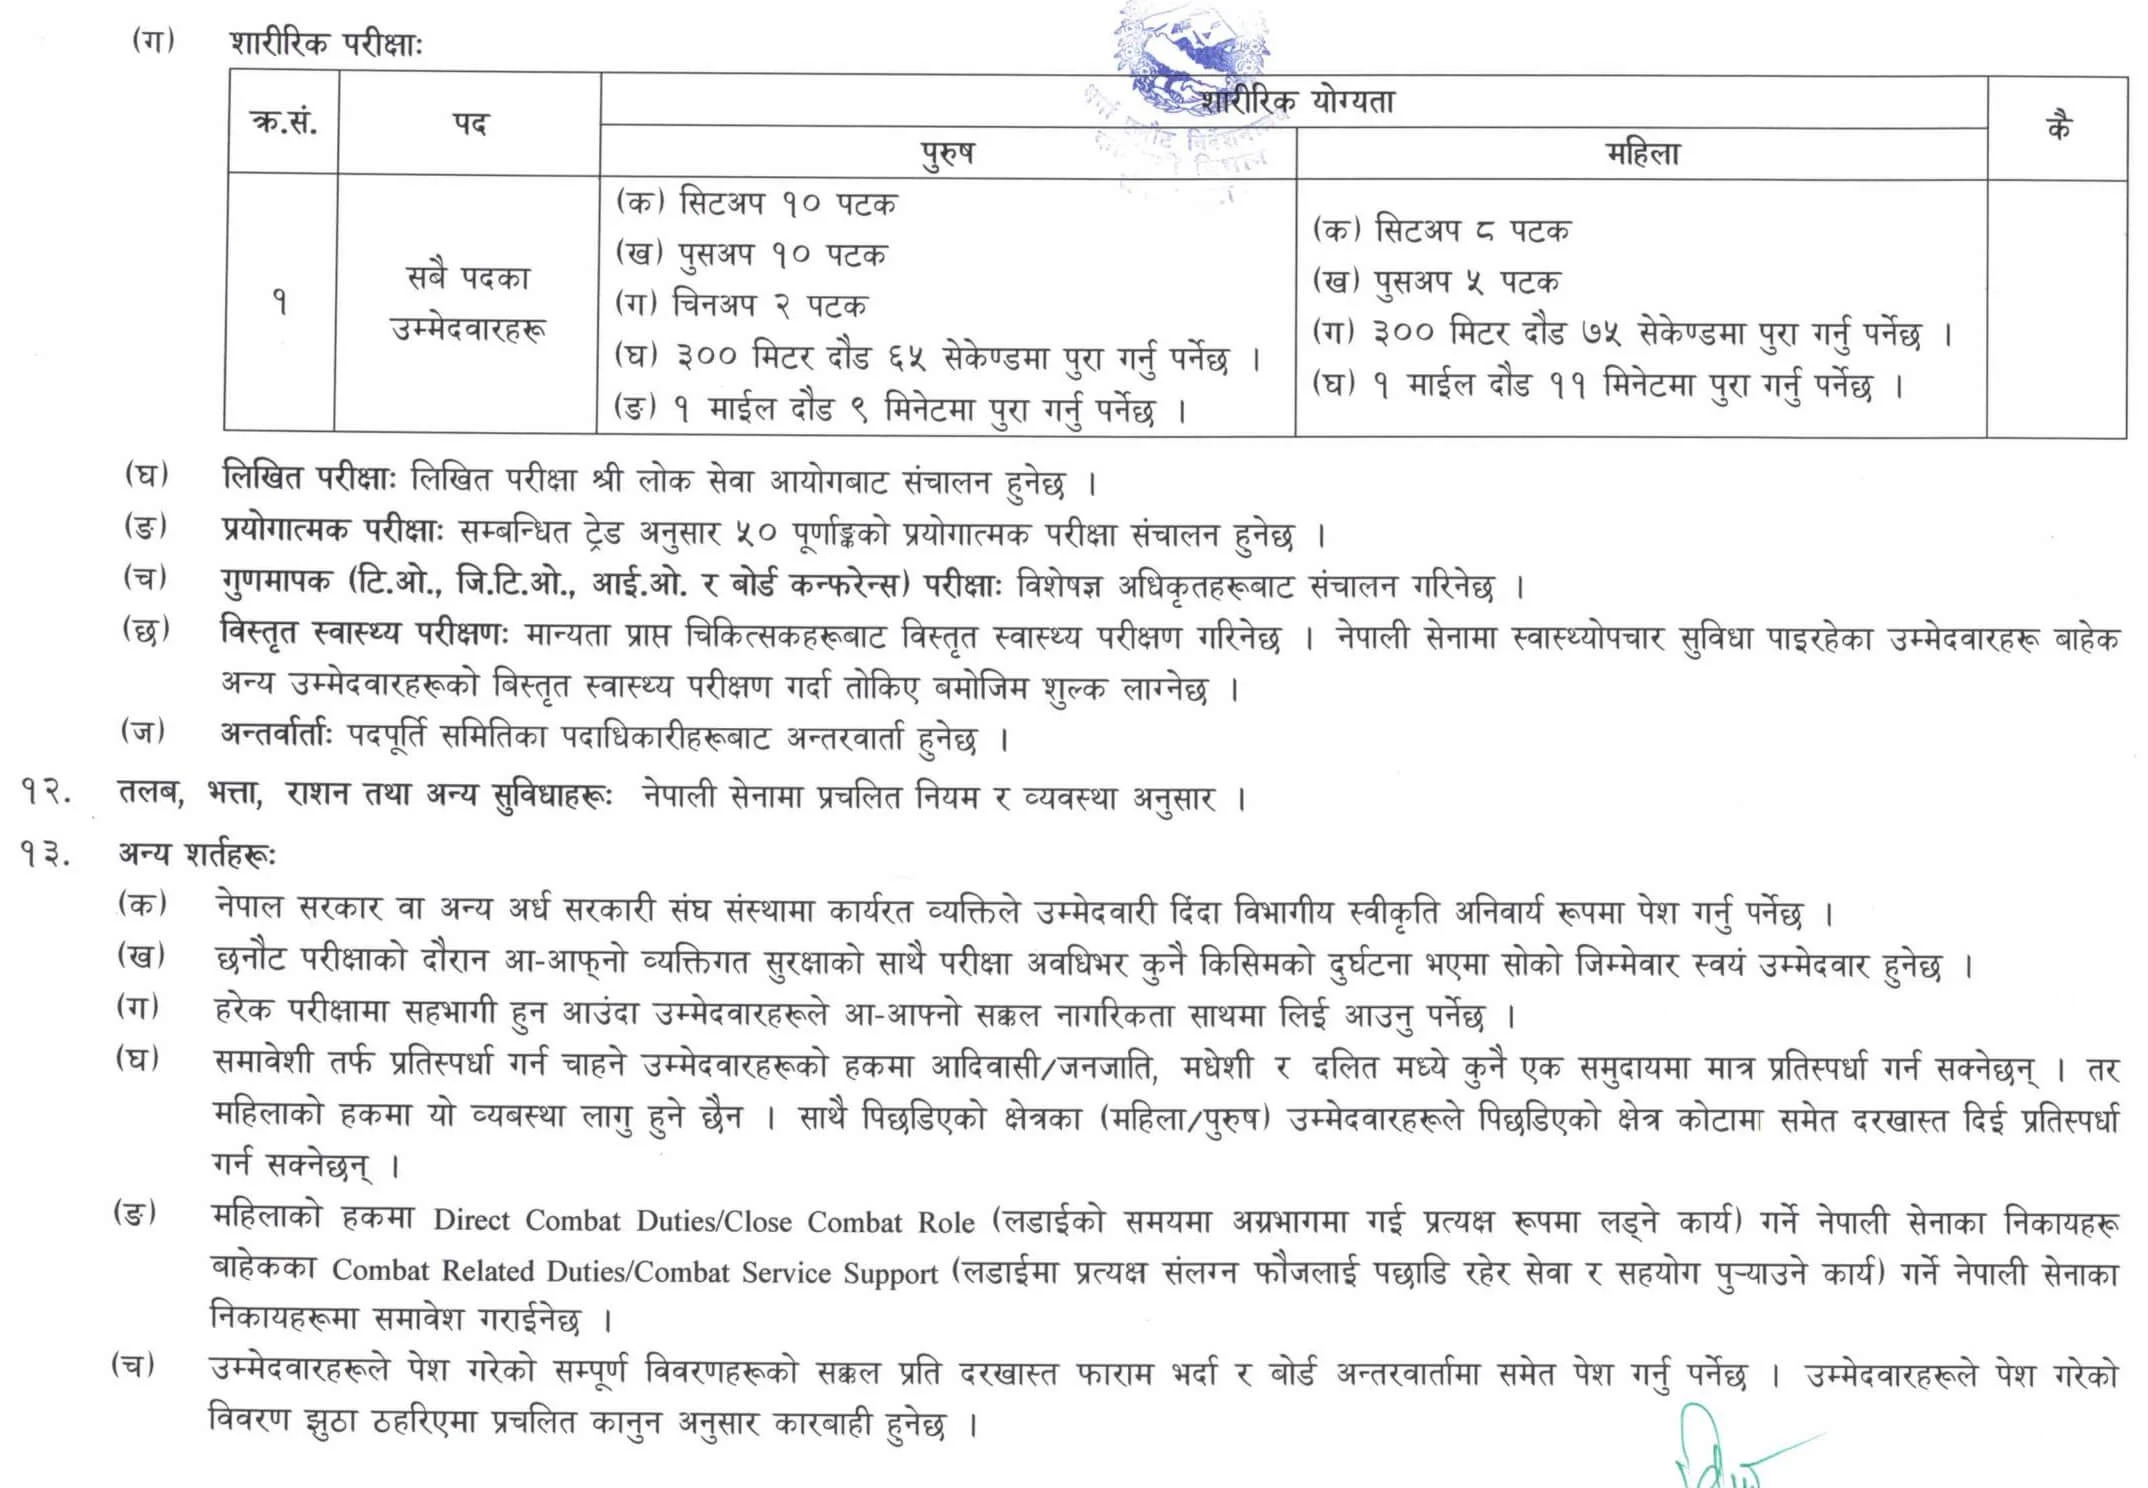 (ग) शारीरिक परीक्षाः
क्र.सं. पद शारीरिक योग्यता कै
पुरुष महिला
१ सबै पदका उम्मेदवारहरू
(क) सिटअप १० पटक
(ख) पुसअप १० पटक
(ग) चिनअप २ पटक
(घ) ३०० मिटर दौड ६५ सेकेण्डमा पुरा गर्नु पर्नेछ ।
(ङ) १ माईल दौड ९ मिनेटमा पुरा गर्नु पर्नेछ ।
(क) सिटअप ८ पटक
(ख) पुसअप ५ पटक
(ग) ३०० मिटर दौड ७५ सेकेण्डमा पुरा गर्नु पर्नेछ ।
(घ) १ माईल दौड ११ मिनेटमा पुरा गर्नु पर्नेछ ।
(घ) लिखित परीक्षाः लिखित परीक्षा श्री लोक सेवा आयोगबाट संचालन हुनेछ ।
(ङ) प्रयोगात्मक परीक्षाः सम्बन्धित ट्रेड अनुसार ५० पूर्णाङ्कको प्रयोगात्मक परीक्षा संचालन हुनेछ ।
(च) गुणमापक (टि.ओ., जि.टि.ओ., आई.ओ. र बोर्ड कन्फरेन्स) परीक्षाः विशेषज्ञ अधिकृतहरूबाट संचालन गरिनेछ ।
(छ) विस्तृत स्वास्थ्य परीक्षणः मान्यता प्राप्त चिकित्सकहरूबाट विस्तृत स्वास्थ्य परीक्षण गरिनेछ । नेपाली सेनामा स्वास्थ्योपचार सुविधा पाइरहेका उम्मेदवारहरू बाहेक
अन्य उम्मेदवारहरूको बिस्तृत स्वास्थ्य परीक्षण गर्दा तोकिए बमोजिम शुल्क लाग्नेछ ।
(ज) अन्तर्वार्ताः पदपूर्ति समितिका पदाधिकारीहरूबाट अन्तरवार्ता हुनेछ ।
१२. तलब, भत्ता, राशन तथा अन्य सुविधाहरूः नेपाली सेनामा प्रचलित नियम र व्यवस्था अनुसार ।
१३. अन्य शर्तहरूः
(क) नेपाल सरकार वा अन्य अर्ध सरकारी संघ संस्थामा कार्यरत व्यक्तिले उम्मेदवारी दिंदा विभागीय स्वीकृति अनिवार्य रूपमा पेश गर्नु पर्नेछ ।
(ख) छनौट परीक्षाको दौरान आ-आफ्‌नो व्यक्तिगत सुरक्षाको साथै परीक्षा अवधिभर कुनै किसिमको दुर्घटना भएमा सोको जिम्मेवार स्वयं उम्मेदवार हुनेछ ।
(ग) हरेक परीक्षामा सहभागी हुन आउंदा उम्मेदवारहरूले आ-आफ्नो सक्कल नागरिकता साथमा लिई आउनु पर्नेछ ।
(घ) समावेशी तर्फ प्रतिस्पर्धा गर्न चाहने उम्मेदवारहरूको हकमा आदिवासी/जनजाति, मधेशी र दलित मध्ये कुनै एक समुदायमा मात्र प्रतिस्पर्धा गर्न सक्नेछन् । तर
महिलाको हकमा यो व्यबस्था लागु हुने छैन । साथै पिछडिएको क्षेत्रका (महिला/पुरुष) उम्मेदवारहरूले पिछडिएको क्षेत्र कोटामा समेत दरखास्त दिई प्रतिस्पर्धा
गर्न सक्नेछन् ।
(ङ) महिलाको हकमा Direct Combat Duties/Close Combat Role (लडाईको समयमा अग्रभागमा गई प्रत्यक्ष रूपमा लड्ने कार्य) गर्ने नेपाली सेनाका निकायहरू
बाहेकका Combat Related Duties/Combat Service Support (लडाईमा प्रत्यक्ष संलग्न फौजलाई पछाडि रहेर सेवा र सहयोग पुर्‍याउने कार्य) गर्ने नेपाली सेनाका
निकायहरूमा समावेश गराईनेछ ।
(च) उम्मेदवारहरूले पेश गरेको सम्पूर्ण विवरणहरूको सक्कल प्रति दरखास्त फाराम भर्दा र बोर्ड अन्तरवार्तामा समेत पेश गर्नु पर्नेछ । उम्मेदवारहरूले पेश गरेको
विवरण झुठा ठहरिएमा प्रचलित कानुन अनुसार कारबाही हुनेछ ।